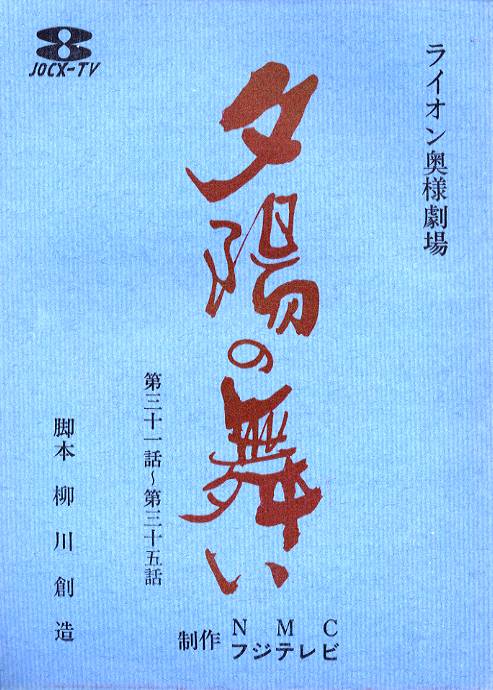 JOCX-TV
ライオン奥様劇場
夕陽の舞い
第三十一話~第三十五話
脚本 柳川創造
制作 NMC
フジテレビ